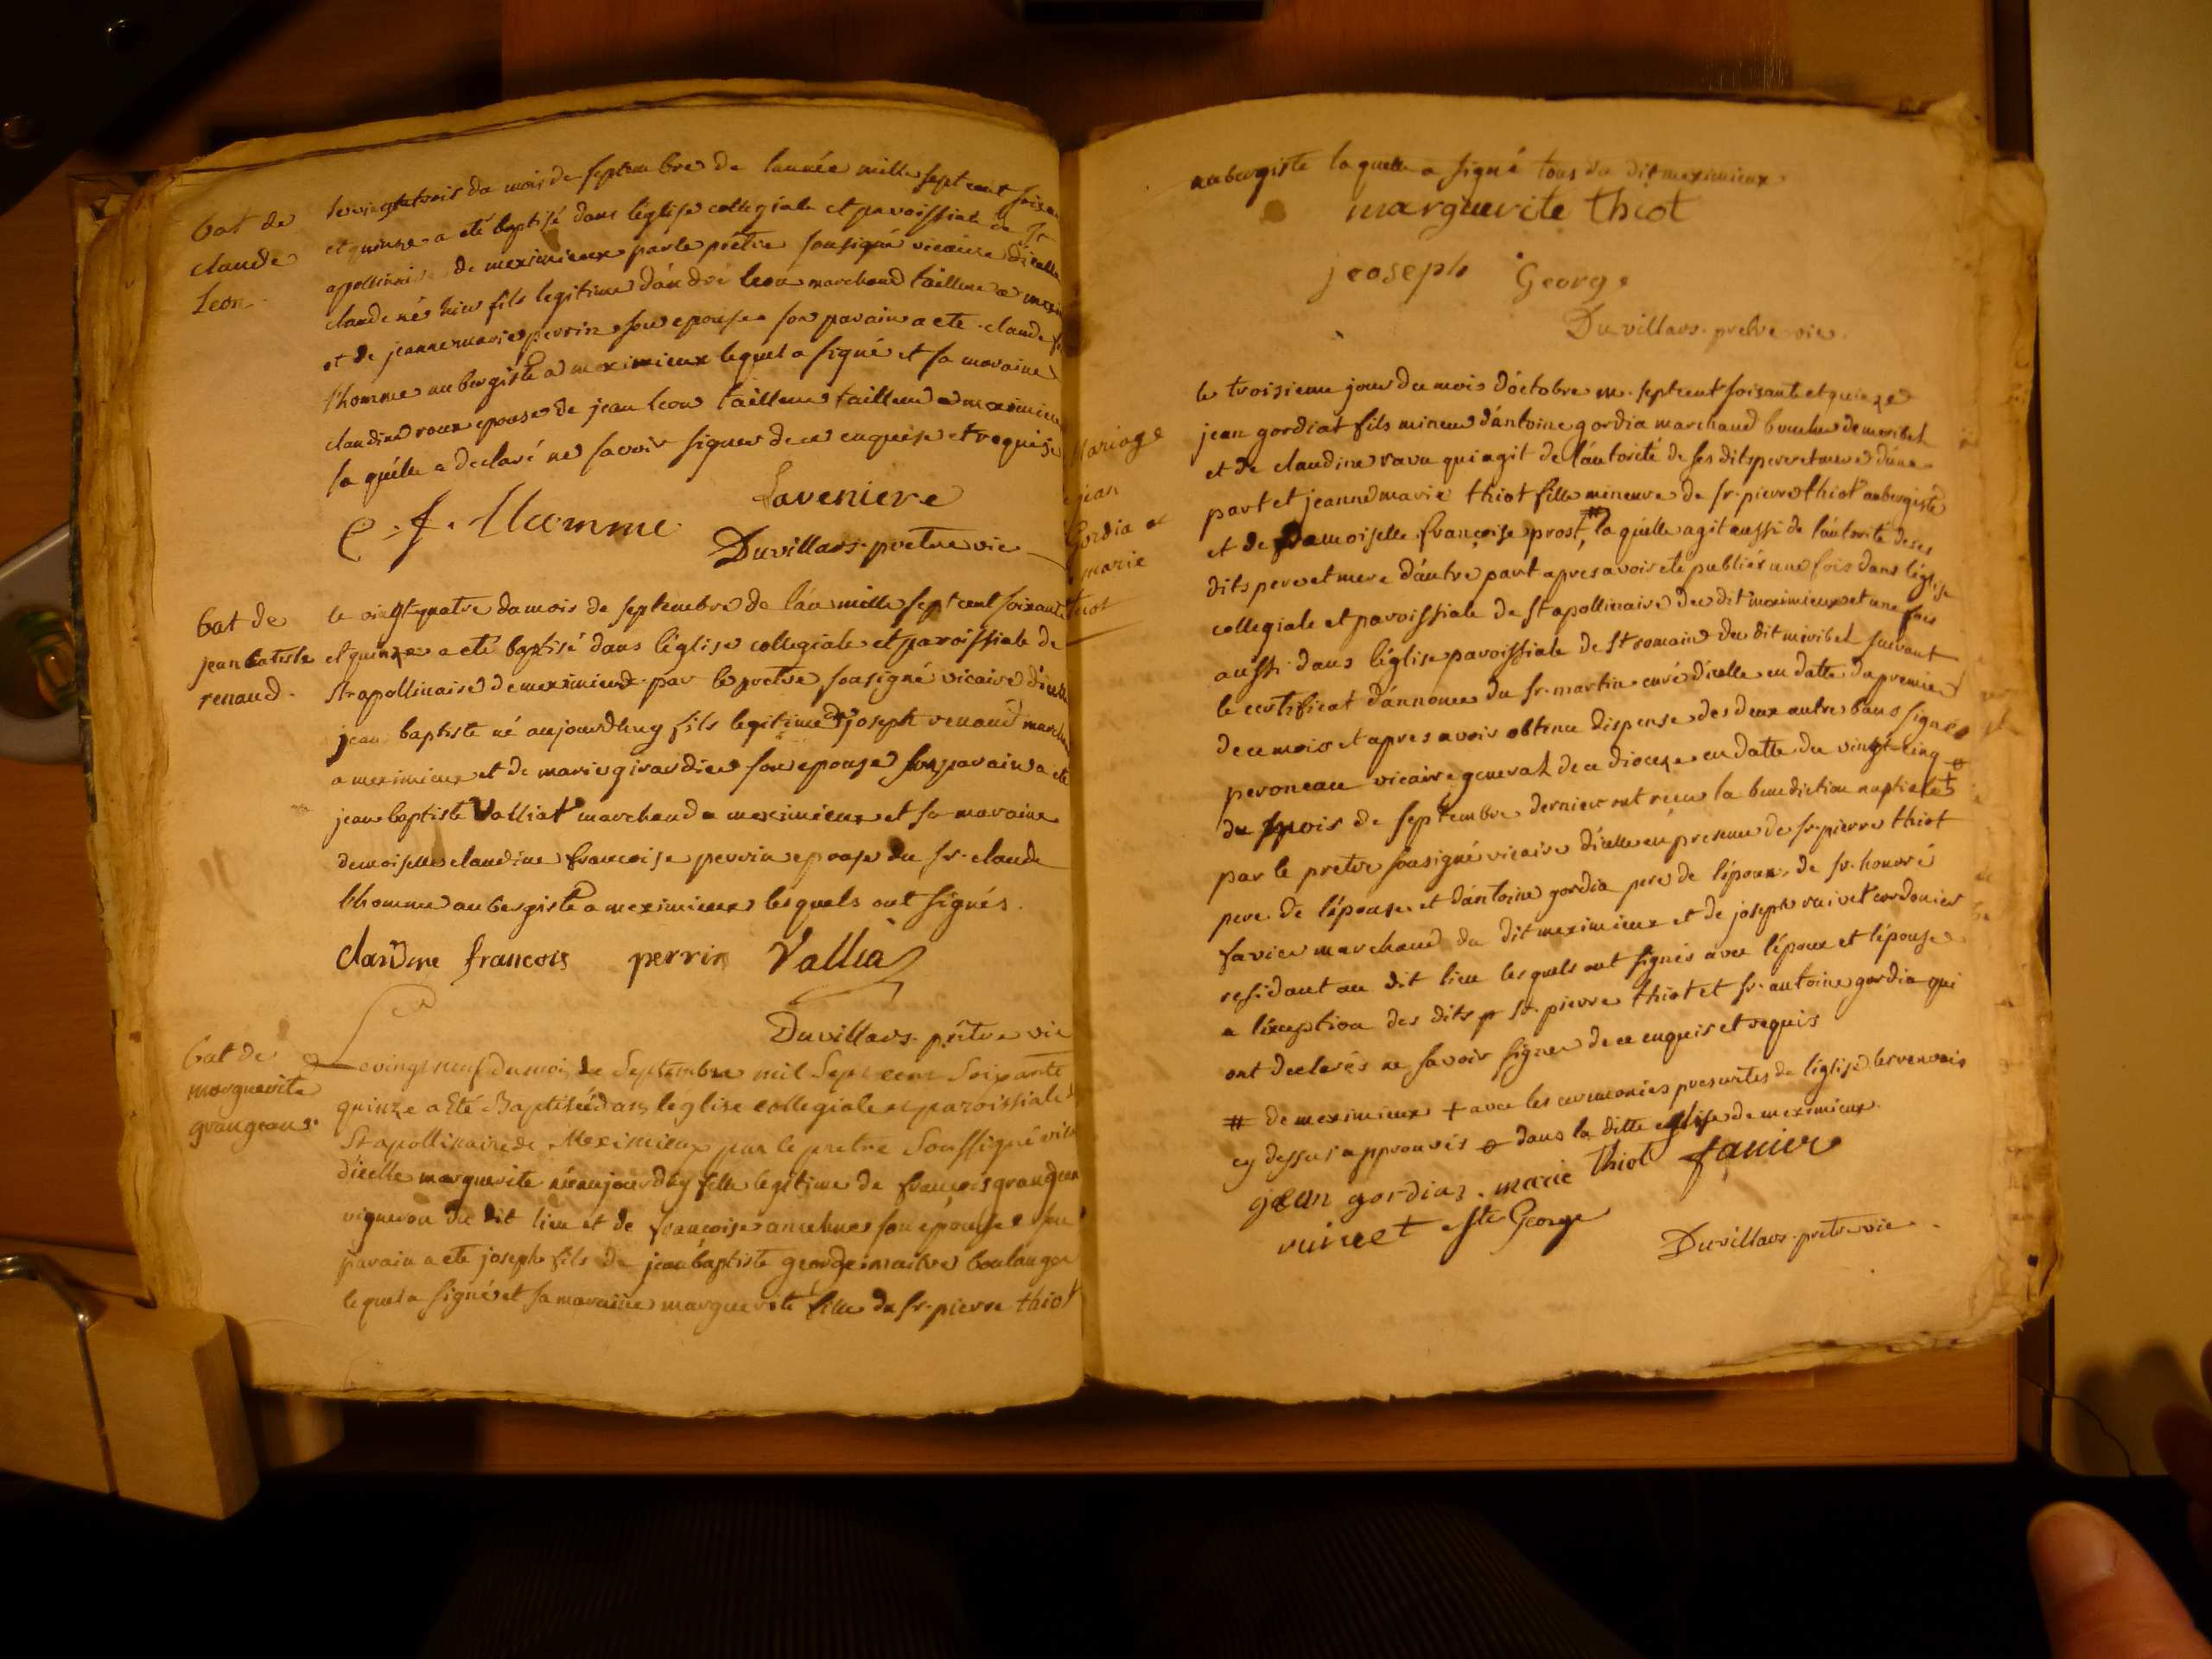 bat de
claude
leon
le vingt trois du mois de septembre de l'année mille sept cent soixan
et quinze a eté baptisé dans l'église collegiale et paroissiale de st
apollinaire de meximieux par le prêtre sousigné vicaire d'icelle
claude né hier fils legitime d'andré leon marchand tailleur a mexi
et de jeanne marie perrin son epouse son parain a ete claude
lhomme aubergiste a meximieux lequel a signé et sa maraine
claudine roux epouse de jean leon tailleur tailleur a meximieu
laquelle a declaré ne savoir signer de ce enquise et requise
C. f. Lhomme Laveniere
Duvillars prêtre vic
bat de
jean batiste
renaud
le vingt quatre du mois de septembre de l'an mille sept cent soixante
et quinze a eté baptisé dans l'église collegiale et paroissiale de
st apollinaire de meximieux par le prêtre sousigné vicaire d'icelle
jean baptiste né aujourdhuy fils legitime de joseph renaud march
a meximieux et de marie girardier son epouse son parain a ete
jean baptiste Valliat marchand a meximieux et sa maraine
demoiselle claudine francoise perrin epouse du sr. claude
lhomme aubergiste a meximieux lesquels ont signés.
claudine francois perrin Vallia
Duvillars prêtre vic
bat de
marguerite
grangean
Le vingt neuf du mois de Septembre mil Sept cent Soixante
quinze a Eté Baptisée dans leglise collegiale et paroissiale
St apollinaire de Meximieux par le pretre Soussigné
d'icelle marguerite née aujourd'huy fille legitime de françois grangean
vigneron du dit lieu et de françoise anselme son épouse son
parain a ete joseph fils de jean baptiste george maitre boulanger
lequel a signé et sa maraine marguerite fille du sr. pierre thiot
aubergiste laquelle a signé tous du dit meximieux
marguerite thiot
jeoseph George
Duvillars prêtre vic.
Mariage
jean
Gordia et
marie
thiot
le troisieme jour du mois d'octobre m. sept cent soixante et quinze
jean gordiat fils mineur d'antoine gordia marchand boucher de meribel
et de claudine ravu qui agit de l'autorité de ses dits pere et mere d'une
part et jeanne marie thiot fille mineure de sr. pierre thiot aubergiste
et de demoiselle françoise prost # laquelle agit aussi de l'autorité de ses
dits pere et mere d'autre part apres avoir ete publiés une fois dans l'église
collegiale et paroissiale de st apollinaire du dit meximieux et une fois
aussi dans l'église paroissiale de st romain du dit miribel suivant
le certificat d'annonce du sr. martin curé d'icelle en datte du premier
de ce mois et apres avoir obtenu dispense des deux autre bans signés
peroneau vicaire general de ce dioceze en datte du vingt cinq
du mois de septembre dernier ont reçu la benediction nuptiale
par le pretre sousigné vicaire d'icelle en presence de sr. pierre thiot
pere de l'épouse et d'antoine gordia pere de l'époux, de sr. honoré
favier marchand du dit meximieux et de joseph ruivet cordonier
residant au dit lieu lesquels ont signés avec l'époux et l'épouse
a l'exception des dits sr. pierre thiot et sr. antoine gordia qui
ont declarés ne savoir signer de ce enquis et requis
# de meximieux + avec les ceremonies prescrites de l'église les renvois
cy dessus approuvés ɵ dans la ditte eglise de meximieux.
jean gordiaz. marie thiot favier
ruivet Ste George
Duvillars prêtre vic.